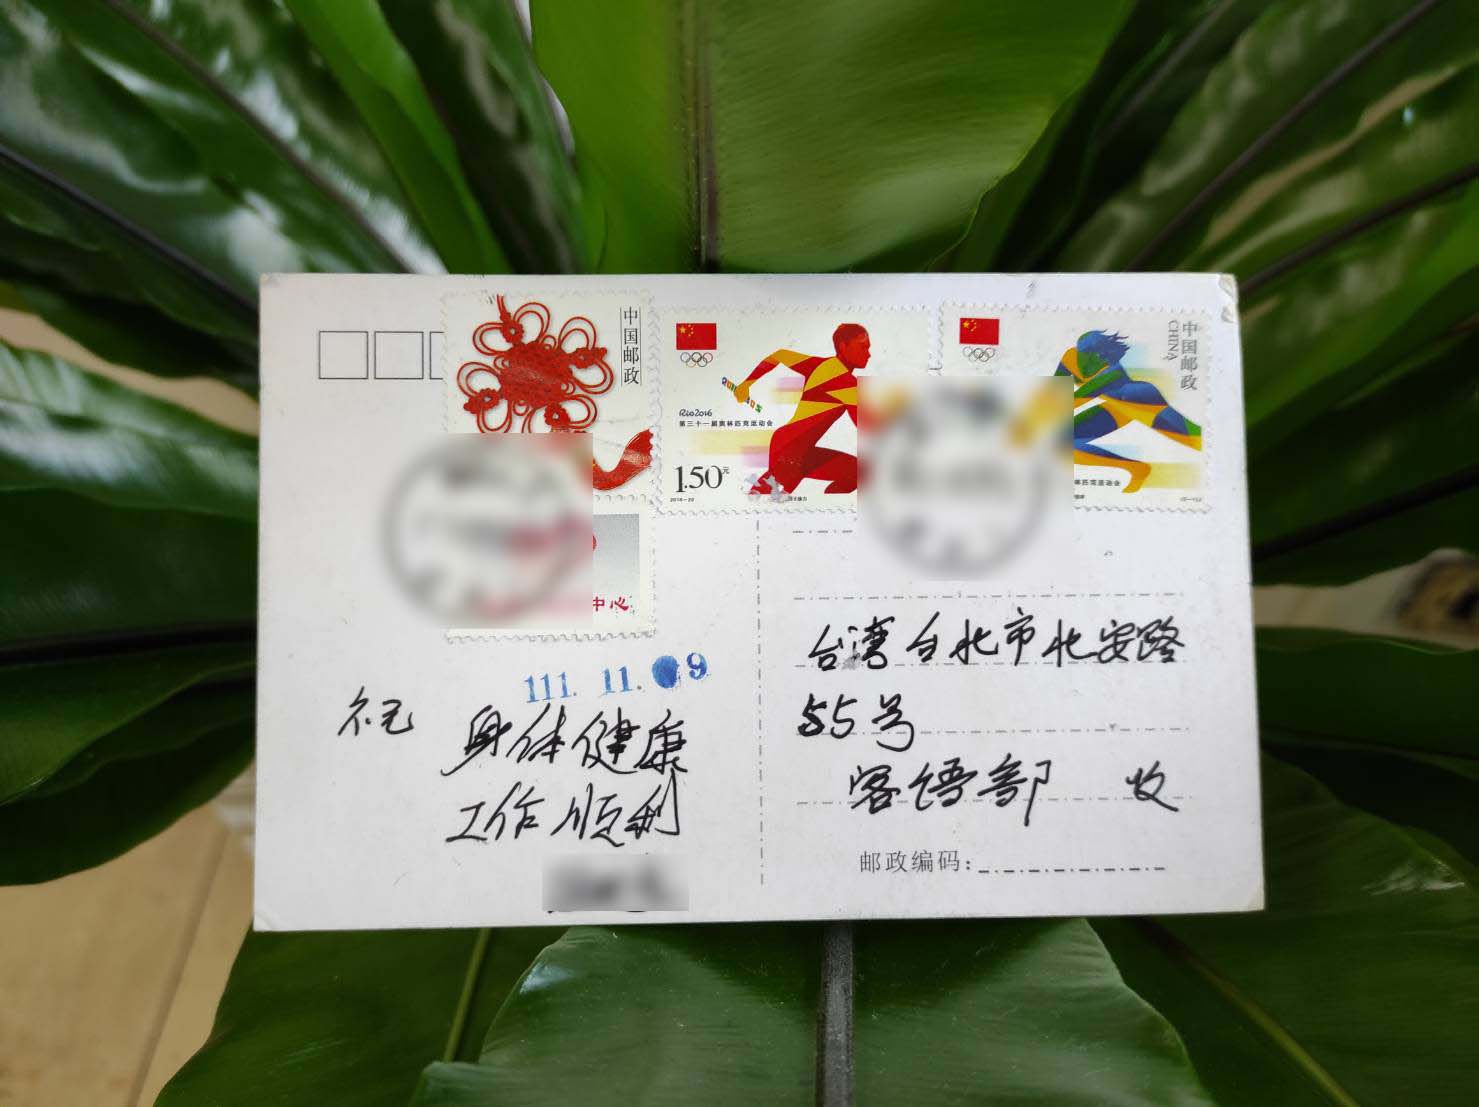 中国邮政
Rio2016
第三十一届奥林匹克运动会
1.50元
2016-20
中国邮政
CHINA
林匹克运动会
中心
111. 11. 9
祝
身体健康
工作顺利
台湾台北市北安路
55号
客语部 收
邮政编码: